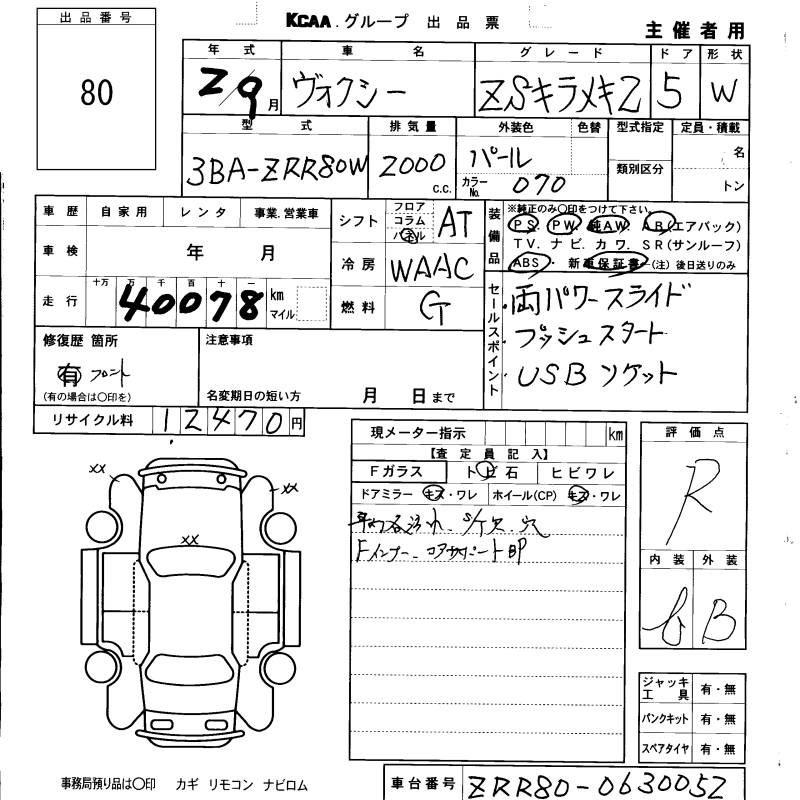 出品番号
80
KCAA.グループ 出品票
主催者用
年式 車名 グレード ドア 形状
2/9月 ヴォクシー ZSキラメキ2 5 W
型式 排気量 外装色 色替 型式指定 定員・積載
3BA-ZRR80W 2000 c.c. パール 名
カラーNo. 070 類別区分 トン
車歴 自家用 レンタ 事業.営業車
車検 年 月
走行 十万 万 千 百 十 一
40078 km マイル
シフト フロア コラム パネル AT
冷房 WAAC
燃料 G
装備品 ※純正のみ〇印をつけて下さい。
PS. PW. 純AW. AB(エアバック)
TV. ナビ. カワ. SR(サンルーフ)
ABS・ 新車保証書・(注)後日送りのみ
セールスポイント
・両パワースライド
・プッシュスタート
・USBソケット
修復歴 箇所
有 フロント
(有の場合は〇印を)
注意事項
名変期日の短い方 月 日まで
リサイクル料 12470円
現メーター指示 km
【査定員記入】
Fガラス トビ石 ヒビワレ
ドアミラー キズ・ワレ ホイール(CP) キズ・ワレ
Fインナー、コアサポートBP
XX
XX
XX
評価点
R
内装 外装
B
ジャッキ工具 有・無
パンクキット 有・無
スペアタイヤ 有・無
事務局預り品は〇印 カギ リモコン ナビロム
車台番号 ZRR80-0630052